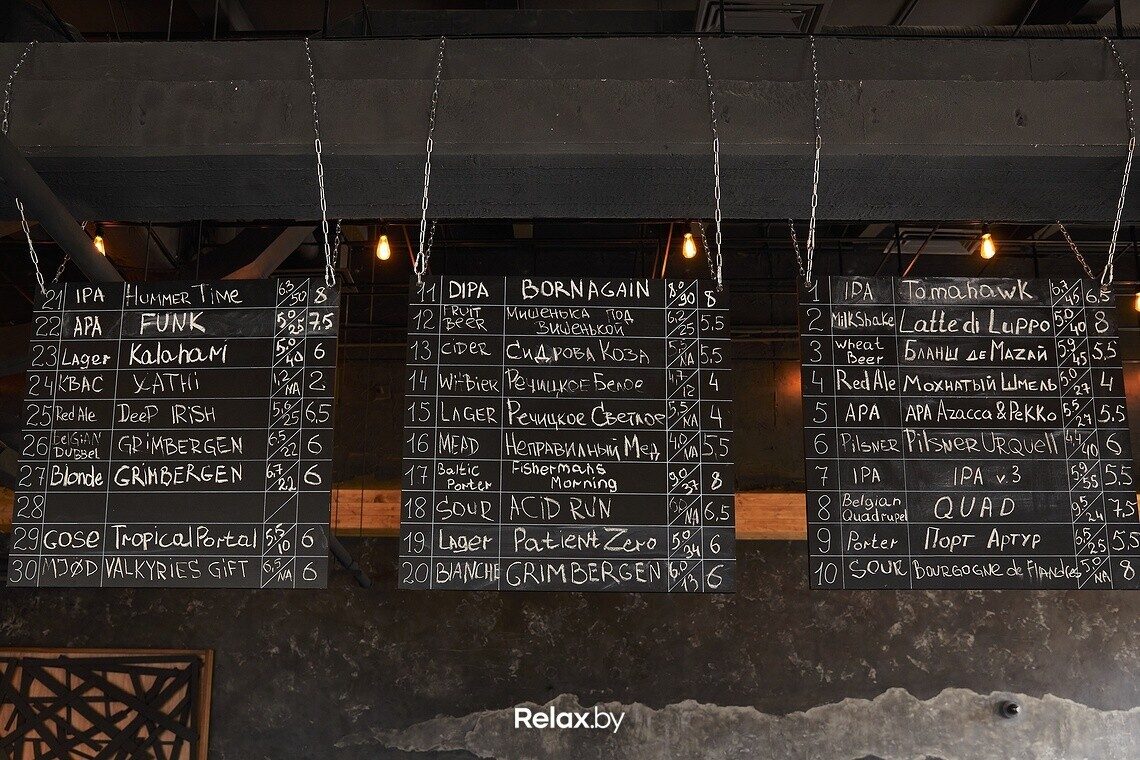 21 IPA HUMMER TIME 6,3/50 8
22 APA FUNK 5,0/25 7.5
23 Lager Kalahari 5,0/40 6
24 КВАС ХАТНі 1,2/NA 2
25 Red Ale DEEP IRISH 5,0/25 6,5
26 BELGIAN DUBBEL GRIMBERGEN 6,5/22 6
27 Blonde GRIMBERGEN 6,7/22 6
28
29 GOSE Tropical Portal 5,5/10 6
30 MJØD VALKYRIES GIFT 6,5/NA 6
11 DIPA BORNAGAIN 8,0/90 8
12 FRUIT BEER Мишенька под Вишенькой 6,2/25 5.5
13 CIDER Сидрова Коза 5,5/NA 5,5
14 WitBier Речицкое Белое 4,7/12 4
15 LAGER Речицкое Светлое 5,5/NA 4
16 MEAD Неправильный Мед 4,0/NA 5,5
17 Baltic Porter Fishermans Morning 9,0/37 8
18 SOUR ACID RUN NA 6,5
19 Lager Patient Zero 5,0/34 6
20 BLANCHE GRIMBERGEN 6,0/13 6
1 IPA Tomahawk 6,7/45 6,5
2 MilkShake Latte di Luppo 5,0/40 8
3 Wheat Beer Бланш де Mazaй 5,9/45 5,5
4 Red Ale Мохнатый Шмель 5,0/27 4
5 APA APA Azacca & Pekko 5,5/27 5.5
6 Pilsner Pilsner URQuell 4,4/40 6
7 IPA IPA v.3 5,9/55 5.5
8 Belgian Quadrupel QUAD 9,5/24 7,5
9 Porter Порт Артур 6,5/25 5.5
10 SOUR BOURGOGNE de FLANDRES 5,0/NA 8
Relax.by